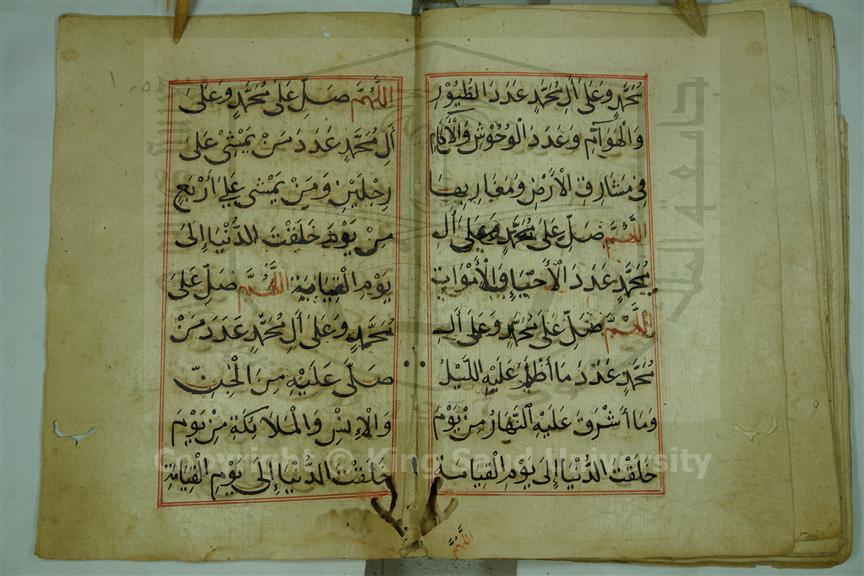 مُحَمَّدٍ وَعَلَى أَلِ مُحَمَّدٍ عَدَدَ الطُّيُوْرِ
وَالْهَوَآمِّ وَعَدَدَ الْوُحُوْشِ وَالْأَكَامِ
فِى مَشَارِقِ الْأَرْضِ وَمَغَارِبِهَا
اَللّٰهُمَّ صَلِّ عَلَى مُحَمَّدٍ وَعَلَى أَلِ
مُحَمَّدٍ عَدَدَ الْأَحْيَاءِ وَالْأَمْوَاتِ
اَللّٰهُمَّ صَلِّ عَلَى مُحَمَّدٍ وَعَلَى أَلِ
مُحَمَّدٍ عَدَدَ مَا أَظْلَمَ عَلَيْهِ اللَّيْلُ
وَمَا أَشْرَقَ عَلَيْهِ النَّهَارُ مِنْ يَوْمَ
خَلَقْتَ الدُّنْيَا إِلَى يَوْمِ الْقِيَامَةِ
اللّٰهُمَّ
اَللّٰهُمَّ صَلِّ عَلَى مُحَمَّدٍ وَعَلَى
أَلِ مُحَمَّدٍ عَدَدَ مَنْ يَمْشِىْ عَلَى
رِجْلَيْنِ وَمَنْ يَمْشِى عَلَى أَرْبَعٍ
مِنْ يَوْمِ خَلَقْتَ الدُّنْيَا إِلَى
يَوْمِ الْقِيَامَةِ اَللّٰهُمَّ صَلِّ عَلَى
مُحَمَّدٍ وَعَلَى أَلِ مُحَمَّدٍ عَدَدَ مَنْ
صَلَّى عَلَيْهِ مِنَ الْجِنِّ
وَالْإِنْسِ وَالْمَلَائِكَةِ مِنْ يَوْمِ
خَلَقْتَ الدُّنْيَا إِلَى يَوْمِ الْقِيَامَةِ
Copyright © King Saud University